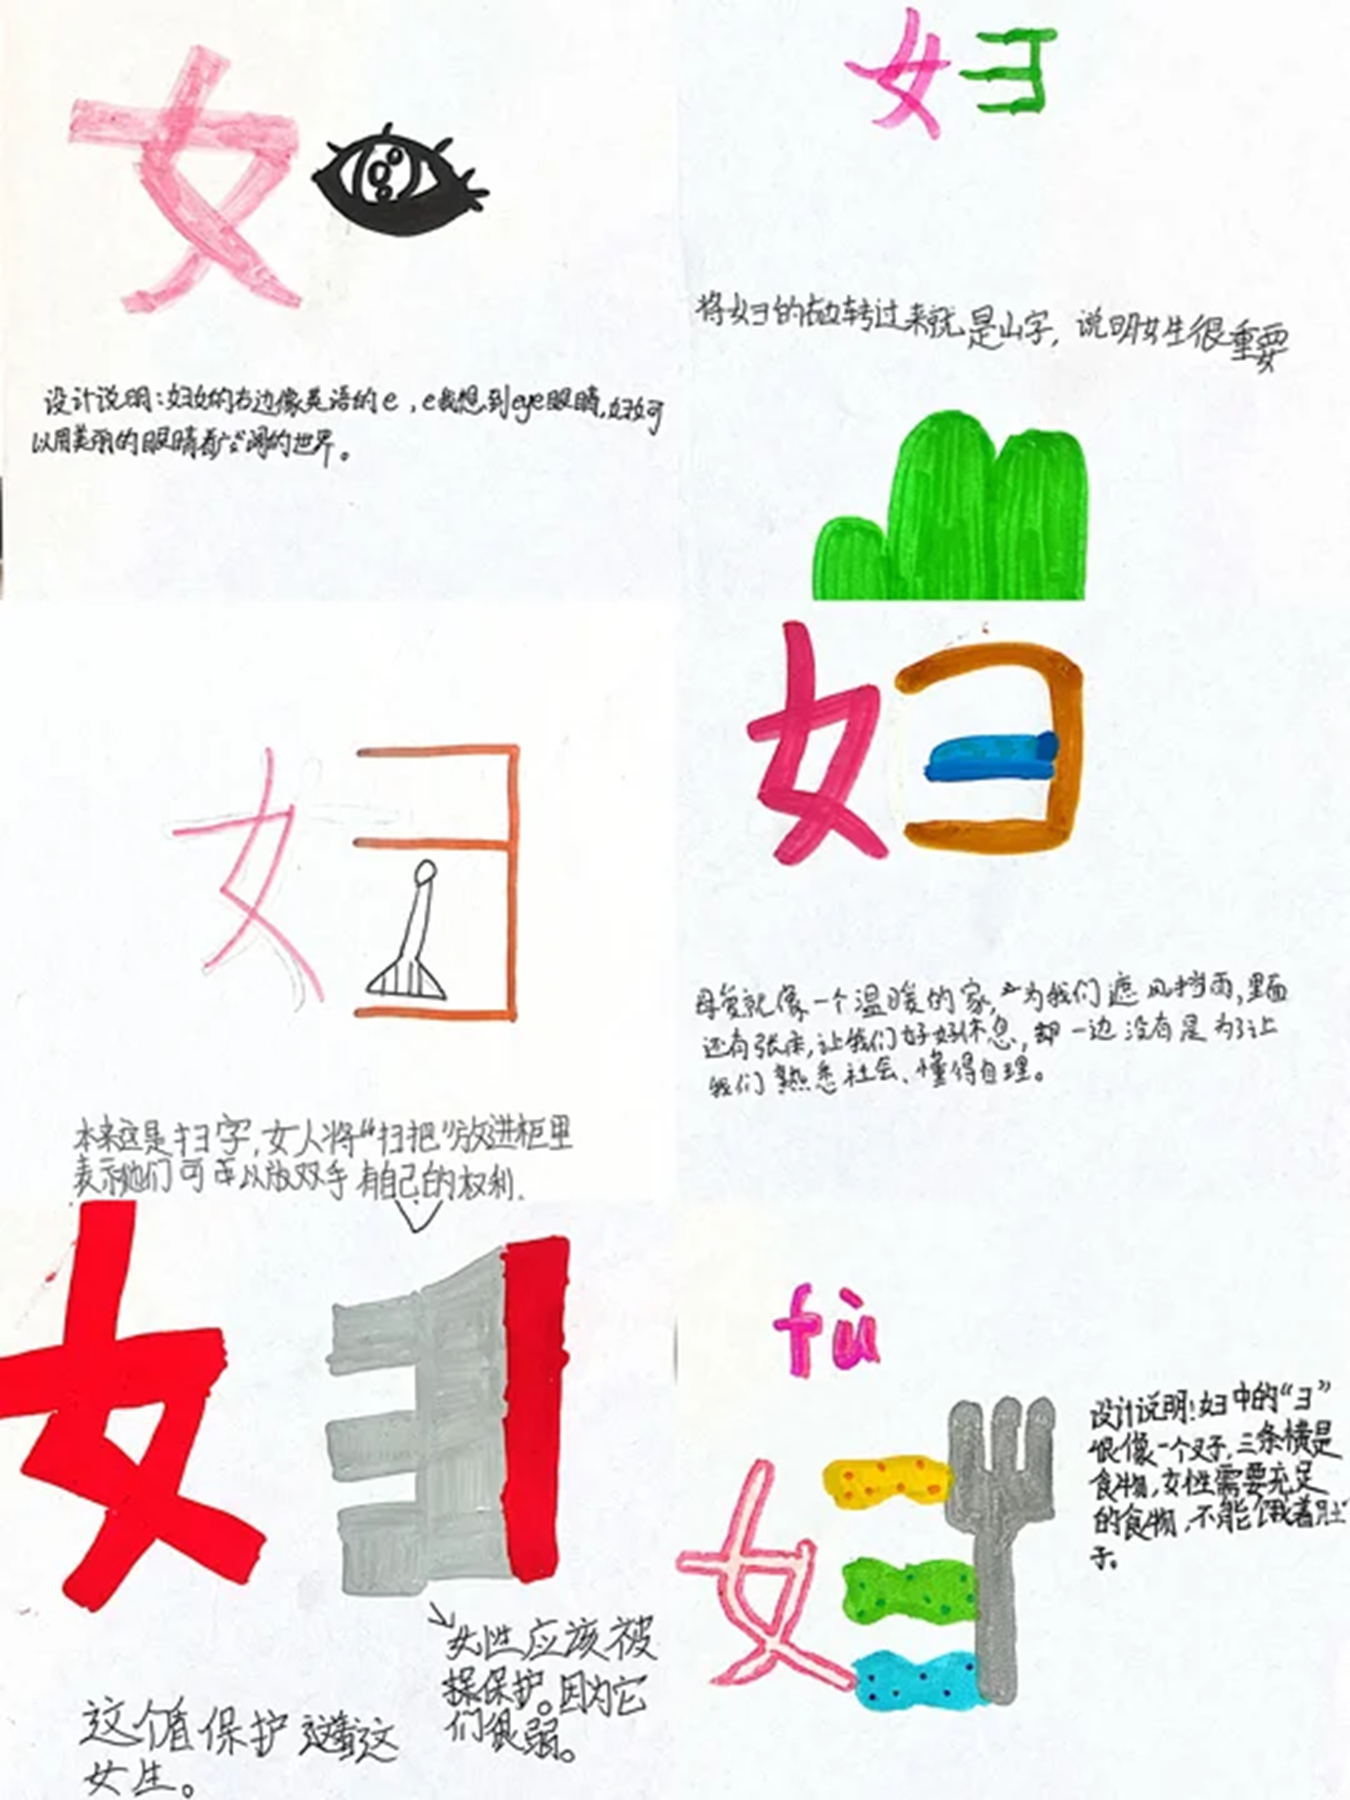 女
设计说明:妇女的右边像英语的e,e我想到eye眼睛,妇女可
以用美丽的眼睛看广阔的世界。
妇
将妇的右边转过来就是山字,说明女生很重要
妇
本来这是扫字,女人将“扫把”放进柜里
表示她们可以放双手有自己的权利.
妇
母爱就像一个温暖的家,为我们遮风挡雨,里面
还有张床,让我们好好休息,却一边没有是为了让
我们熟悉社会、懂得自理。
妇
女性应该被
保护。因为它
们很弱。
这个值保护这
女生。
fù
妇
设计说明:妇中的“彐”
很像一个叉子,三条横是
食物,女性需要充足
的食物,不能饿着肚
子。